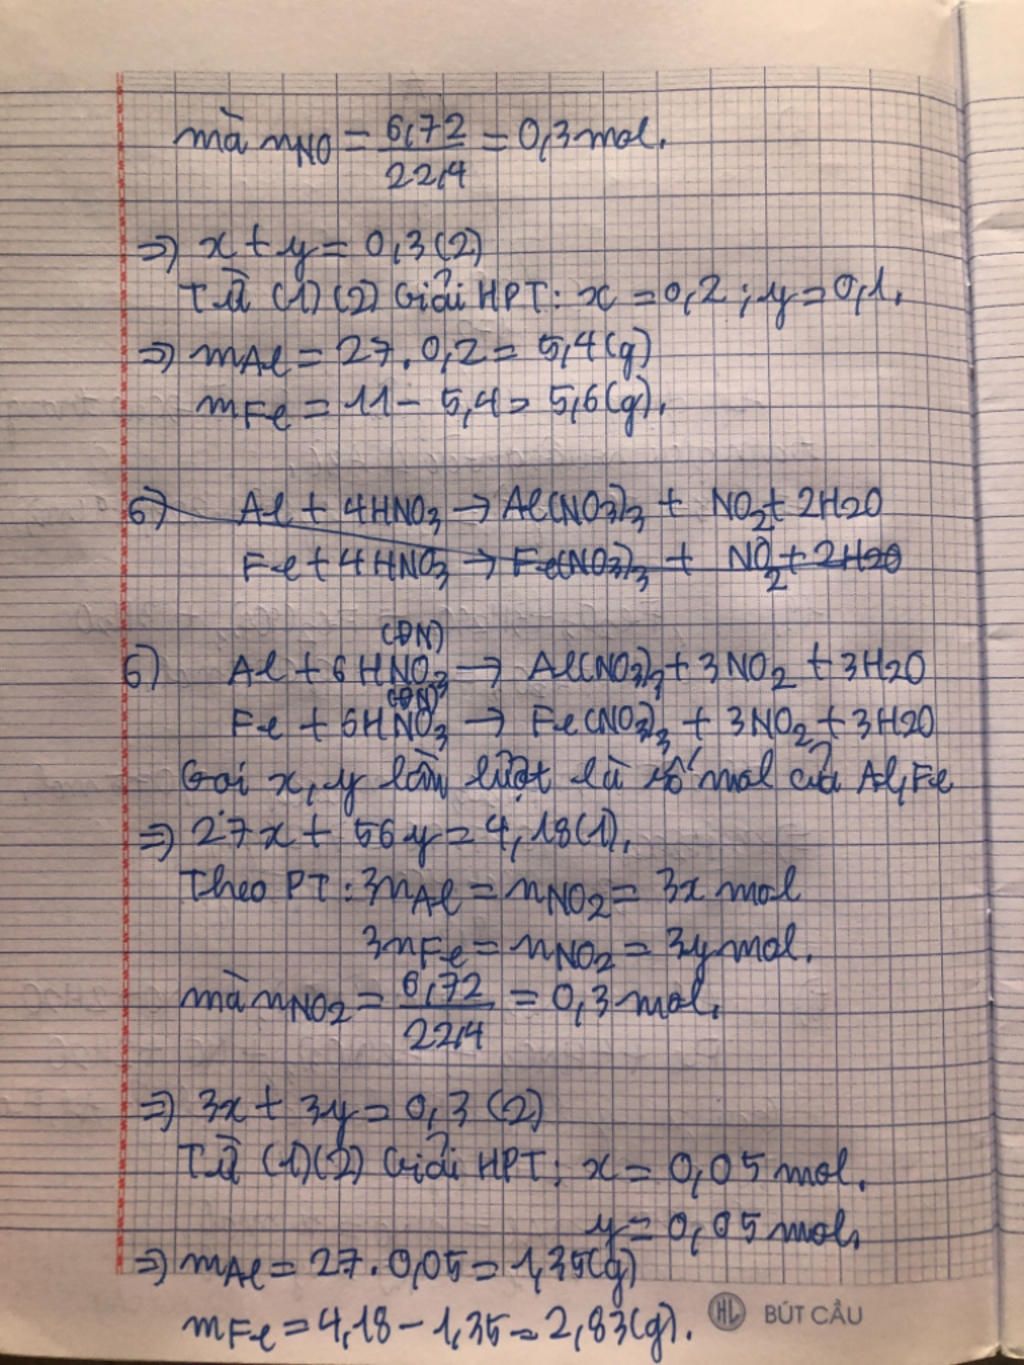 mà nNO = 6,72/22,4 = 0,3 mol.
=> x + y = 0,3 (2)
Từ (1) (2) Giải HPT: x = 0,2 ; y = 0,1.
=> mAl = 27 . 0,2 = 5,4 (g)
mFe = 11 - 5,4 = 5,6 (g).
6) Al + 4HNO3 -> Al(NO3)3 + NO2 + 2H2O
Fe + 4HNO3 -> Fe(NO3)3 + NO2 + 2H2O
(ĐN)
6) Al + 6HNO3 -> Al(NO3)3 + 3NO2 + 3H2O
(ĐN)
Fe + 6HNO3 -> Fe(NO3)3 + 3NO2 + 3H2O
Gọi x, y lần lượt là số mol của Al, Fe
=> 27x + 56y = 4,18 (1).
Theo PT: 3nAl = nNO2 = 3x mol
3nFe = nNO2 = 3y mol.
mà nNO2 = 6,72/22,4 = 0,3 mol.
=> 3x + 3y = 0,3 (2)
Từ (1) (2) Giải HPT: x = 0,05 mol.
y = 0,05 mol.
=> mAl = 27 . 0,05 = 1,35 (g)
mFe = 4,18 - 1,35 = 2,83 (g).
HL BÚT CẦU